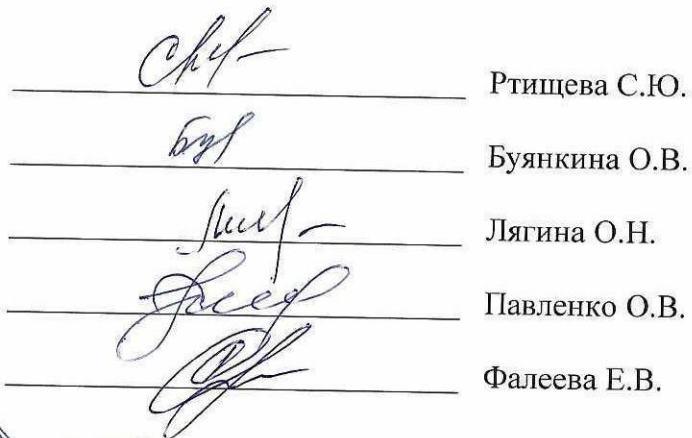 Ртищева С.Ю.
Буянкина О.В.
Лягина О.Н.
Павленко О.В.
Фалеева Е.В.